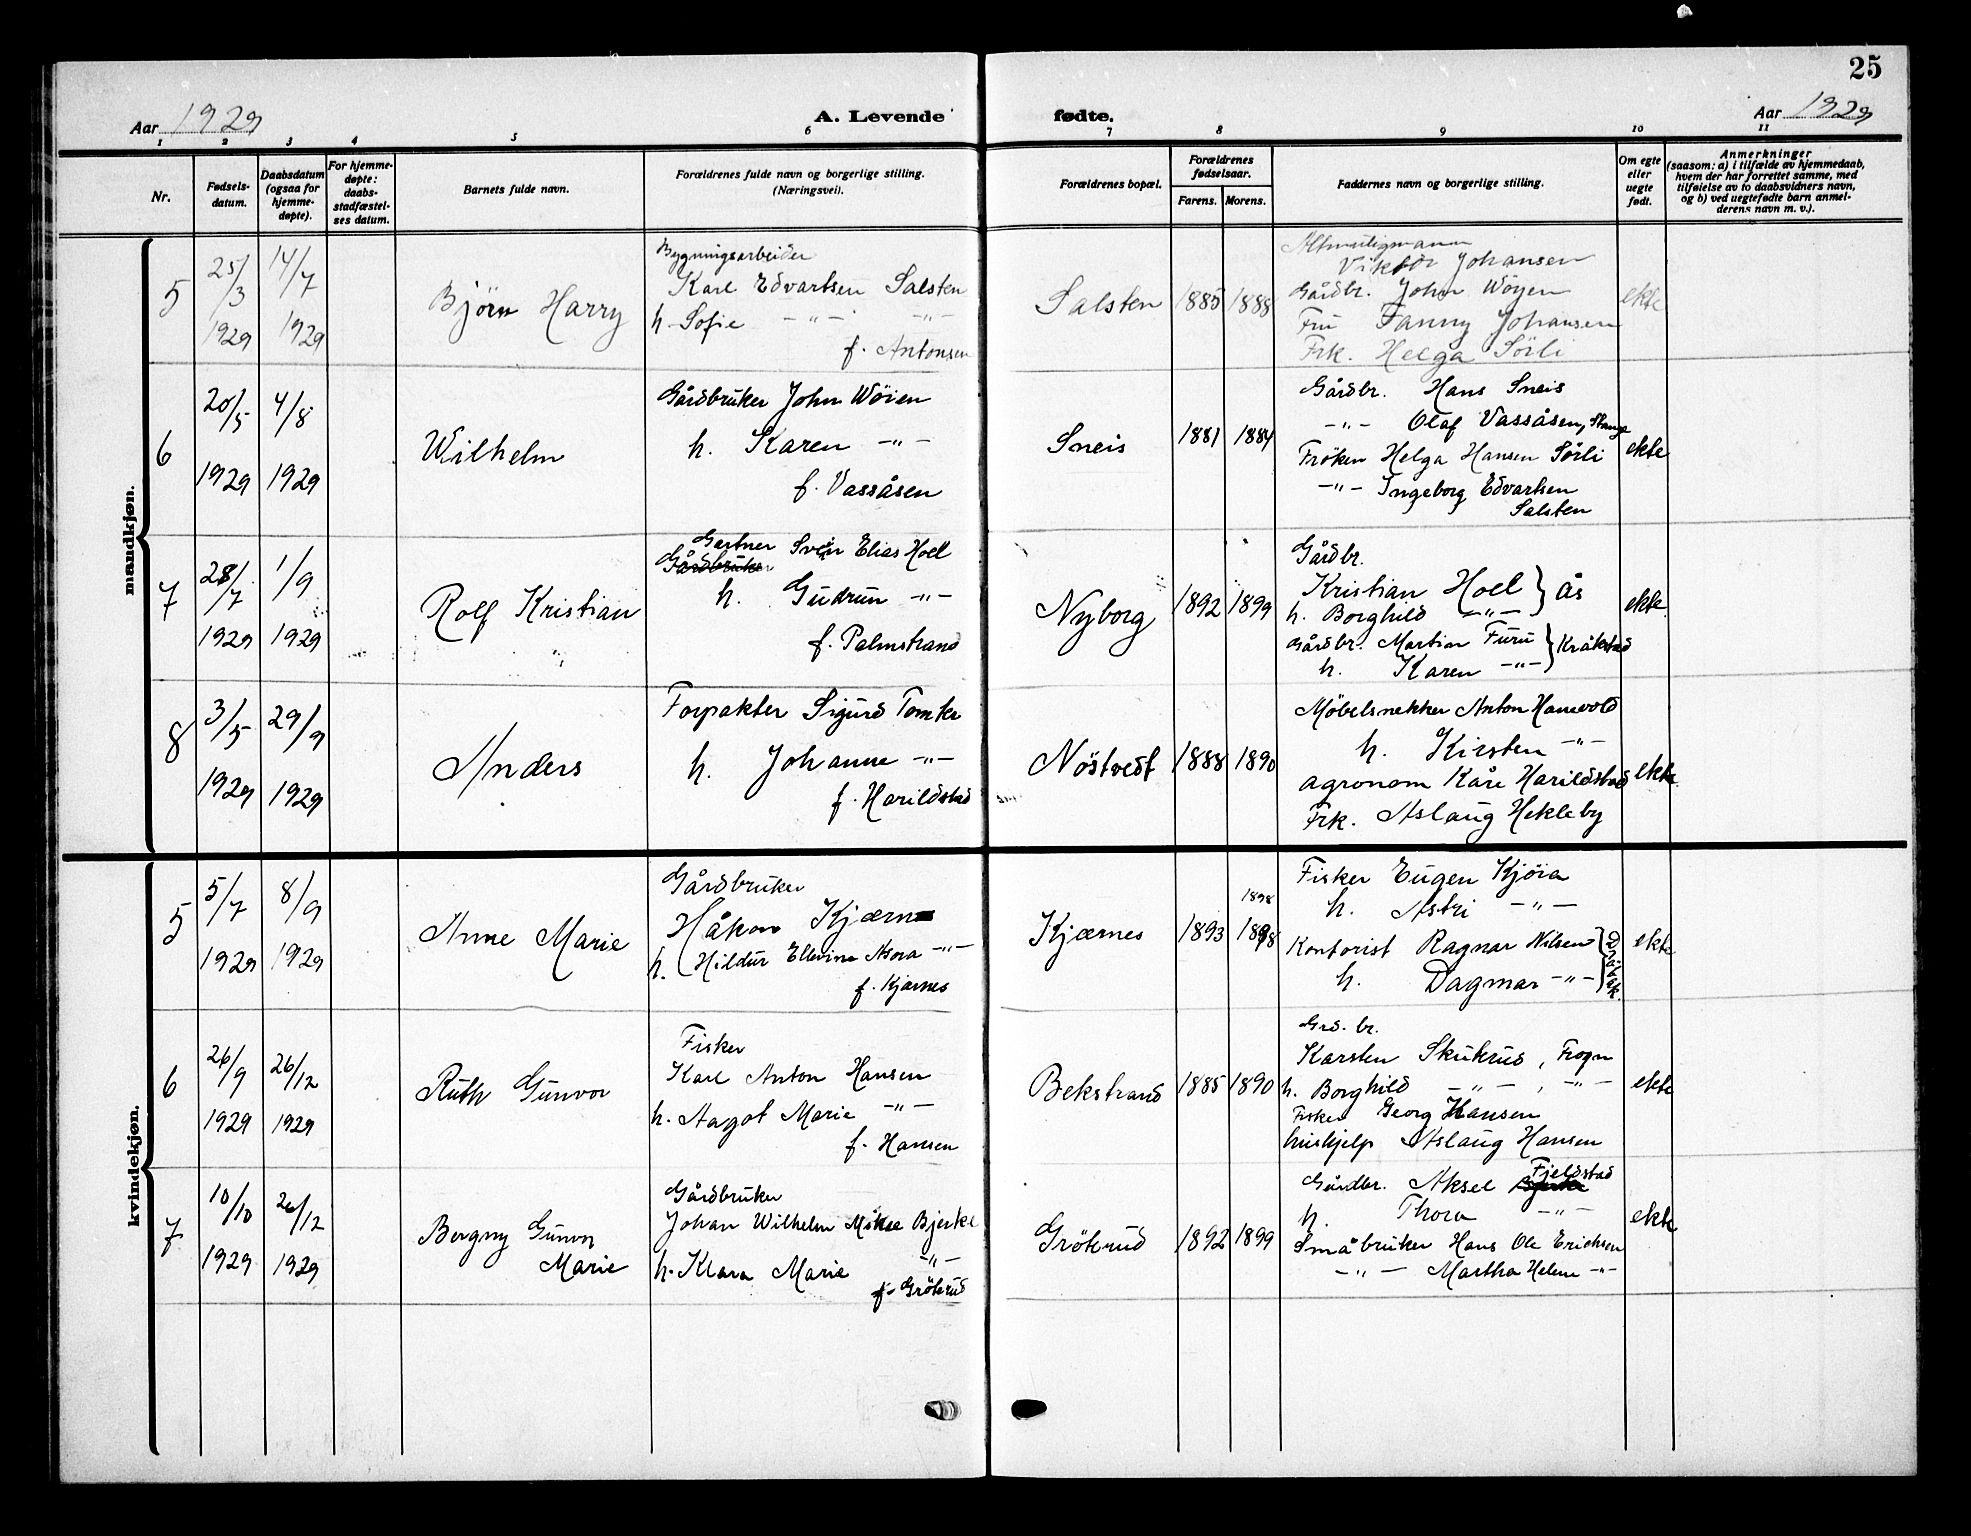 25
Aar 1929
A. Levende fødte.
Aar 1929
1 2 3 4 5 6 7 8 9 10 11
Nr.
Fødsels-
datum.
Daabsdatum
(ogsaa for
hjemme-
døpte).
For hjemme-
døpte:
daabs-
stadfæstel-
ses datum.
Barnets fulde navn.
Forældrenes fulde navn og borgerlige stilling.
(Næringsvei).
Forældrenes bopæl.
Forældrenes
fødselsaar.
Farens. Morens.
Faddernes navn og borgerlige stilling.
Om egte
eller
uegte
født.
Anmerkninger
(saasom: a) i tilfælde av hjemmedaab,
hvem der har forrettet samme, med
tilføielse av to daabsvidners navn,
og b) ved uegtefødte barn anmel-
derens navn m. v.).
mandkjøn.
5
25/3
1929
14/7
1929
Björn Harry
Bygningsarbeider
Karl Edvartsen Salsten
h. Sofie -"- -"-
f. Antonsen
Salsten
1885
1888
Altmuligmann
Viktor Johansen
Gårdbr. John Wöyen
Fru Fanny Johansen
Frk. Helga Sörli
ekte
6
20/5
1929
4/8
1929
Wilhelm
Gårdbruker John Wöien
h. Karen -"-
f. Vassåsen
Sneis
1881
1884
Gårdbr. Hans Sneis
-"- Olaf Vassåsen, Stange
Fröken Helga Hansen Sörli
-"- Ingeborg Edvartsen
Salsten
ekte
7
28/7
1929
1/9
1929
Rolf Kristian
Gartner Svein Elias Hoel
Gårdbruker
h. Gudrun -"-
f. Palmstrand
Nyborg
1892
1899
Gårdbr.
Kristian Hoel } Ås
h. Borghild -"-
Gårdbr. Martin Furu } Kråkstad
h. Karen -"-
ekte
8
3/5
1929
29/9
1929
Anders
Forpakter Sigurd Tomter
h. Johanne -"-
f. Harildstad
Nöstvedt
1888
1890
Möbelsnekker Anton Hanevold
h. Kirsten -"-
agronom Kåre Harildstad
Frk. Aslaug Hekleby
ekte
kvindekjøn.
5
5/7
1929
8/9
1929
Anne Marie
Gårdbruker
Håkon Kjærnes
h. Hildur Ellevine Asora -"-
f. Kjærnes
Kjærnes
1893
1898
1898
Fisker Eugen Kjöia
h. Astri -"-
Kontorist Ragnar Nilsen } Dröbak
h. Dagmar -"-
ekte
6
26/9
1929
26/12
1929
Ruth Gunvor
Fisker
Karl Anton Hansen
h. Aagot Marie -"-
f. Hansen
Bekstrand
1885
1890
Grd. br.
Karsten Skukrud, Frogn
h. Borghild -"-, -"-
Fisker Georg Hansen
hushjelp Aslaug Hansen
ekte
7
10/10
1929
26/12
1929
Bergny Gunvor
Marie
Gårdbruker
Johan Wilhelm Bjerke
h. Klara Marie -"-
f. Gröterud
Gröterud
1892
1899
Fjeldstad
Gårdbr. Aksel Bjerke
h. Thora -"-
Småbruker Hans Ole Erichsen
-"- Martha Helene -"-
ekte